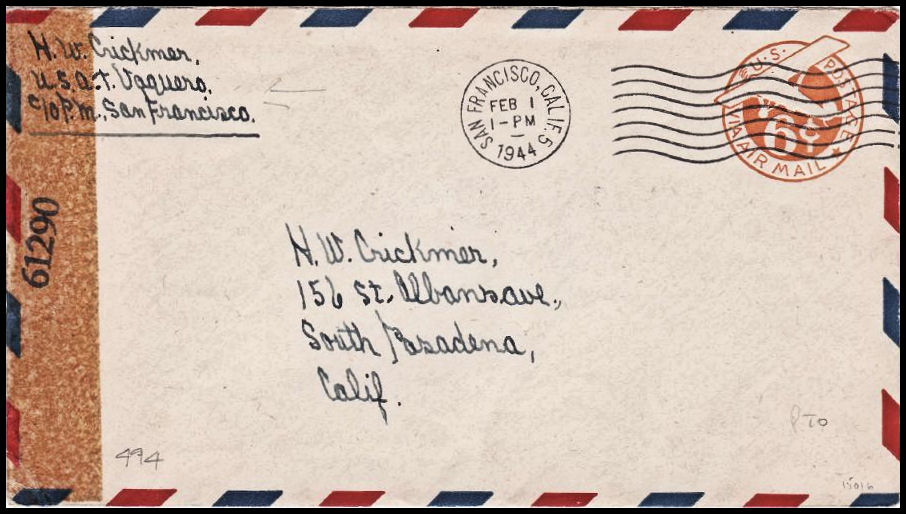 H. W. Crickmer,
U.S.A.T. Vaquero,
c/o P.M., San Francisco.
61290
SAN FRANCISCO, CALIF. 5
FEB 1
1-PM
1944
U.S. POSTAGE
6¢
VIA AIR MAIL
H. W. Crickmer,
156 St. Albans ave.,
South Pasadena,
Calif.
494
PTO
15016